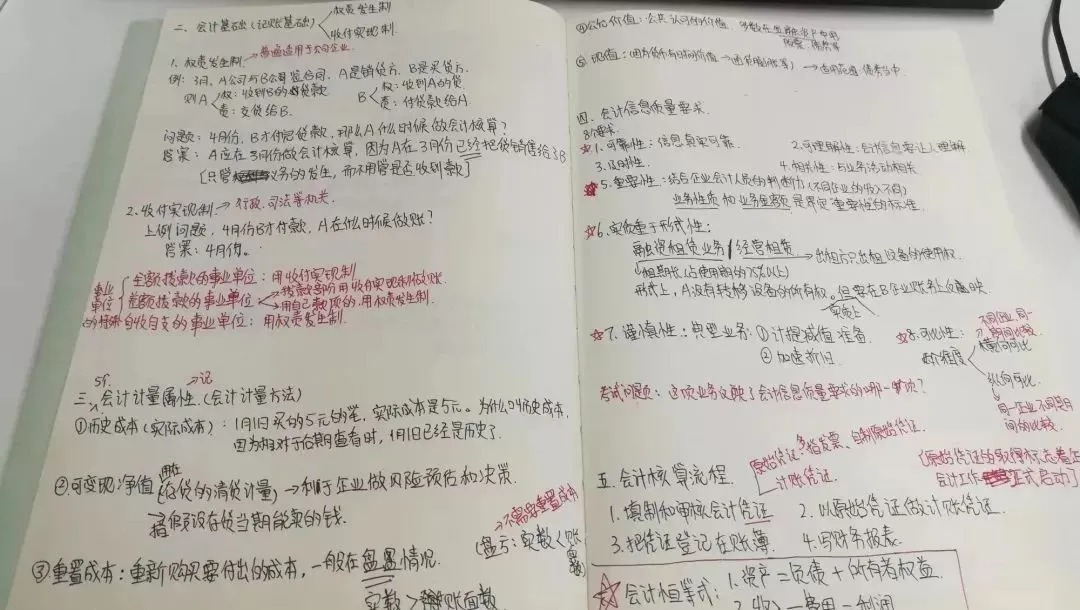 二、会计基础(记账基础)
权责发生制
收付实现制
1. 权责发生制 → 普遍适用于大多企业
例:3月,A公司与B公司签合同,A是销货方,B是买货方.
则A
权:收到B的货款
责:交货给B.
B
权:收到A的货
责:付货款给A
问题:4月份,B才付完货款,那么A什么时候做会计核算?
答案:A应在3月份做会计核算,因为A在3月份已经把货销售给了B
[只管业务的发生,而不用管是否收到款]
2. 收付实现制 → 行政、司法等机关.
上例问题,4月份B才付款,A在什么时候做账?
答案:4月份.
事业单位
全额拨款的事业单位:用收付实现制
差额拨款的事业单位
拨款部分用收付实现制做账.
用自己款项的,用权责发生制.
自收自支的事业单位:用权责发生制.
5个
→记
三、会计计量属性.(会计计量方法)
①历史成本(实际成本):1月1日买的5元的笔,实际成本是5元。为什么叫历史成本,
因为相对于后期查看时,1月1日已经是历史了.
②可变现净值
用在(存货的清货计量) → 利于企业做风险预估和决策.
→指假设存货当期能卖的钱.
③重置成本:重新购买要付出的成本,一般在盘盈情况.
实数 > 账面数
→不需要重置成本
(盘亏:实数 < 账面数)
④公允价值:公共认可的价值,多数在金融资产中用
股票、债券等
⑤现值:因为货币有时间价值 →
四、会计信息质量要求.
8个要求.
☆1. 可靠性:信息真实可靠.
2. 可理解性:会计信息要让人理解.
3. 及时性.
4. 相关性:与业务活动相关
☆5. 重要性:结合企业会计人员的判断力(不同企业的收入不同)
业务性质和业务金额是界定重要性的标准.
☆6. 实质重于形式性:
融资租赁业务 / 经营租赁 → 出租方只出租设备的使用权
→租期长(占使用期的75%以上)
形式上,A没有转移设备的所有权。但要在B企业账务上反映.
实质上
☆7. 谨慎性:典型业务:①计提减值准备
②加速折旧
☆8. 可比性:
两个维度
不同企业,同一期间比较.
横向可比
纵向可比.
同一企业不同期间的比较.
考试问题:这项业务反映了会计信息质量要求的哪一项?
五、会计核算流程.
原始凭证:多指发票、自制原始凭证.
记账凭证.
(原始凭证的取得标志着会计工作正式启动)
1. 填制和审核会计凭证
2. 以原始凭证做记账凭证.
3. 把凭证登记在账簿.
4. 写财务报表.
☆会计恒等式:1. 资产 = 负债 + 所有者权益.
2. 收入 - 费用 = 利润